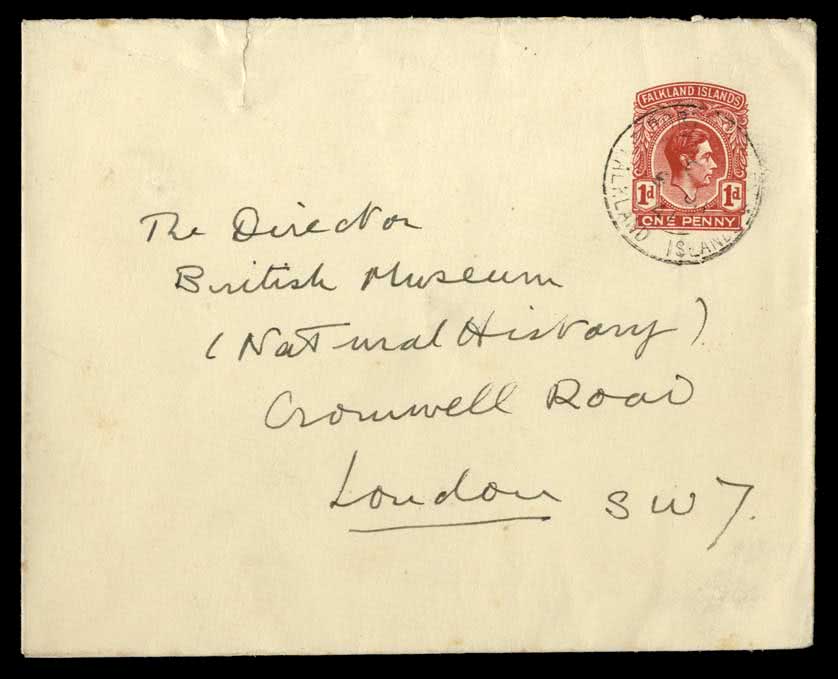 FALKLAND ISLANDS
1d 1d
ONE PENNY
FALKLAND ISLANDS
The Director
British Museum
(Natural History)
Cromwell Road
London SW7.